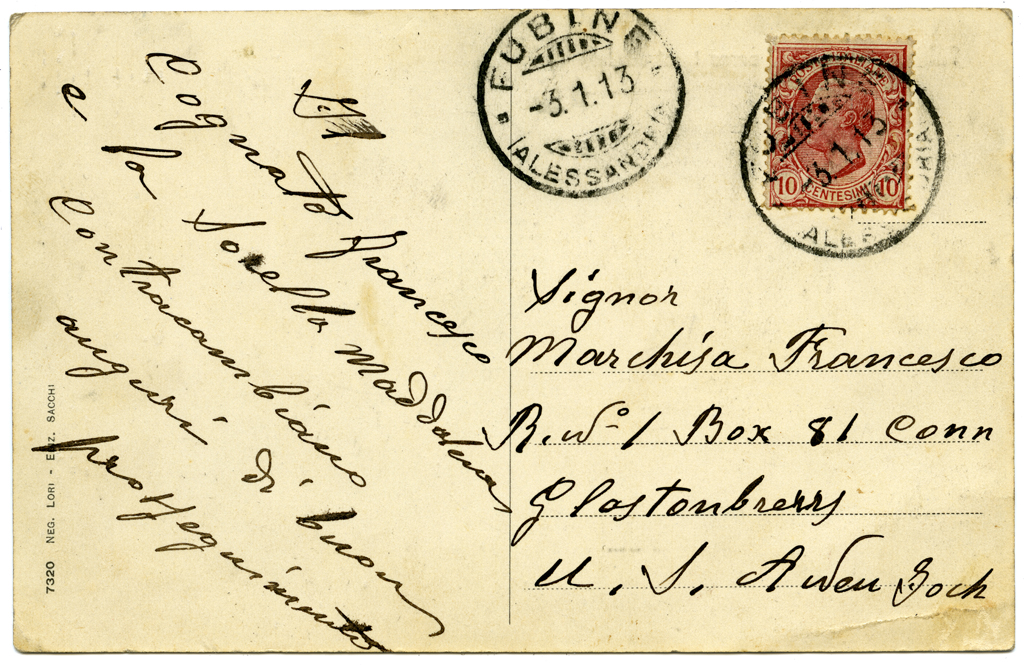 Cognato Francesco
e la Sorella Maddalena
Contracambiamo
auguri di buon
proseguimento
FUBINE
-3.1.13
(ALESSANDRIA)
POSTE ITALIANE
10 CENTESIMI 10
-3.1.13
Signor
Marchisa Francesco
R. No 1 Box 81 Conn
Glostonbrerrs
U. S.
7320 NEG. LORI - EDIZ. SACCHI